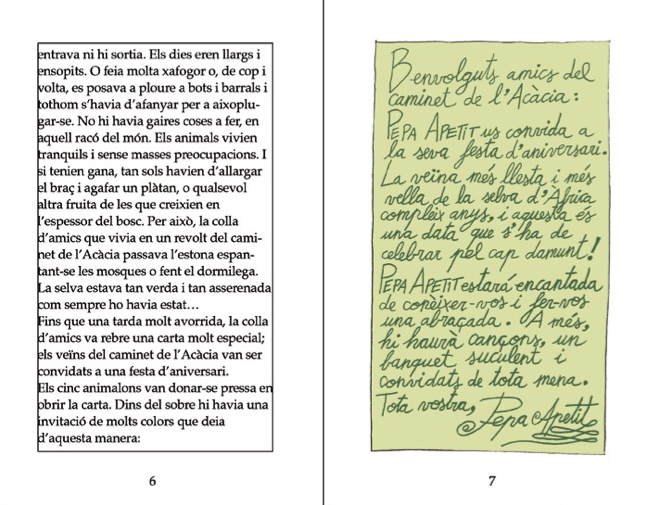 entrava ni hi sortia. Els dies eren llargs i
ensopits. O feia molta xafogor o, de cop i
volta, es posava a ploure a bots i barrals i
tothom s'havia d'afanyar per a aixoplu-
gar-se. No hi havia gaires coses a fer, en
aquell racó del món. Els animals vivien
tranquils i sense masses preocupacions. I
si tenien gana, tan sols havien d'allargar
el braç i agafar un plàtan, o qualsevol
altra fruita de les que creixien en
l'espessor del bosc. Per això, la colla
d'amics que vivia en un revolt del cami-
net de l'Acàcia passava l'estona espan-
tant-se les mosques o fent el dormilega.
La selva estava tan verda i tan asserenada
com sempre ho havia estat…
Fins que una tarda molt avorrida, la colla
d'amics va rebre una carta molt especial;
els veïns del caminet de l'Acàcia van ser
convidats a una festa d'aniversari.
Els cinc animalons van donar-se pressa en
obrir la carta. Dins del sobre hi havia una
invitació de molts colors que deia
d'aquesta manera:
6
Benvolguts amics del
caminet de l'Acàcia:
PEPA APETIT us convida a
la seva festa d'aniversari.
La veïna més llesta i més
vella de la selva d'Àfrica
compleix anys, i aquesta és
una data que s'ha de
celebrar pel cap damunt!
PEPA APETIT estará encantada
de conèixer-vos i fer-vos
una abraçada. A més,
hi haurà cançons, un
banquet suculent i
convidats de tota mena.
Tota vostra,
Pepa Apetit
7